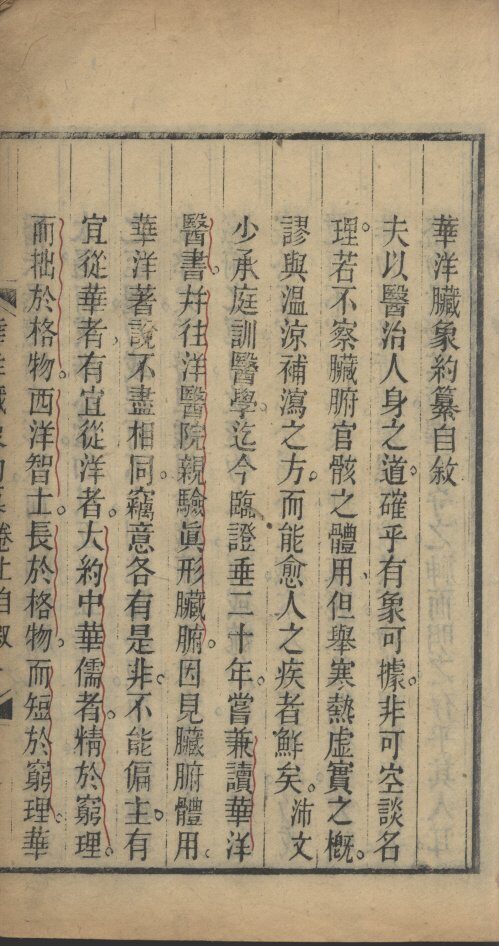 華洋臟象約纂自敘
夫以醫治人身之道。確乎有象可據。非可空談名
理。若不察臟腑官骸之體用、但舉寒熱虛實之槪。
謬與溫涼補瀉之方。而能愈人之疾者鮮矣。沛文
少承庭訓醫學。迄今臨證垂二十年。嘗兼讀華洋
醫書。幷往洋醫院親驗眞形臟腑。因見臟腑體用、
華洋著說不盡相同。竊意各有是非。不能偏主。有
宜從華者、有宜從洋者。大約中華儒者。精於窮理。
而拙於格物。西洋智士。長於格物。而短於窮理。華